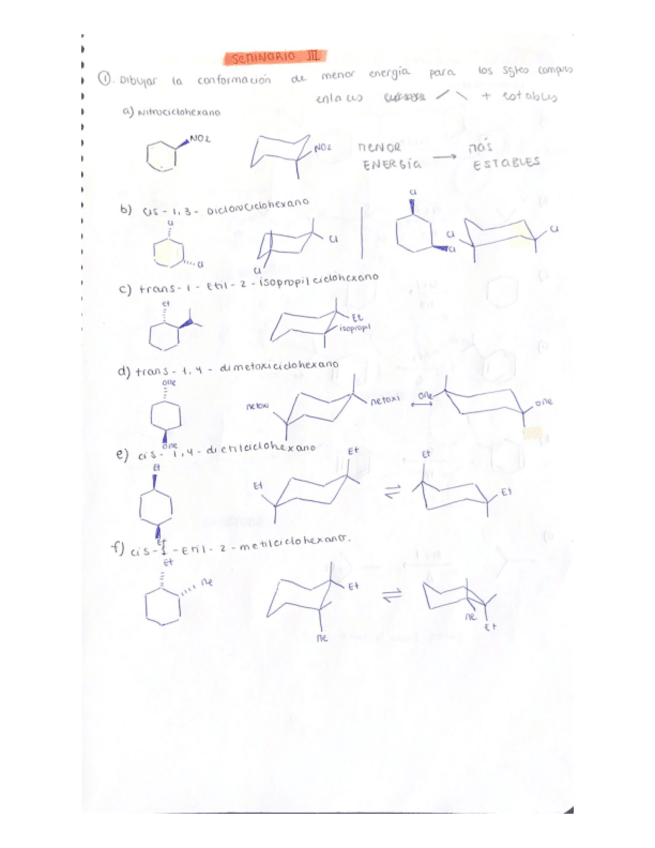 SEMINARIO III
① Dibujar la conformación de menor energía para los sgtes compus
enlaces + estables
a) Nitrociclohexano
NO2 NO2 MENOR ENERGÍA → MÁS ESTABLES
b) cis-1,3-Diclorociclohexano
Cl Cl Cl Cl Cl Cl Cl Cl
c) trans-1-Etil-2-isopropilciclohexano
Et Et isopropil
d) trans-1,4-dimetoxiciclohexano
OMe OMe metoxi metoxi OMe OMe
e) cis-1,4-dietilciclohexano
Et Et Et Et Et Et
f) cis-1-Etil-2-metilciclohexano.
Et Me Et Me Me Et